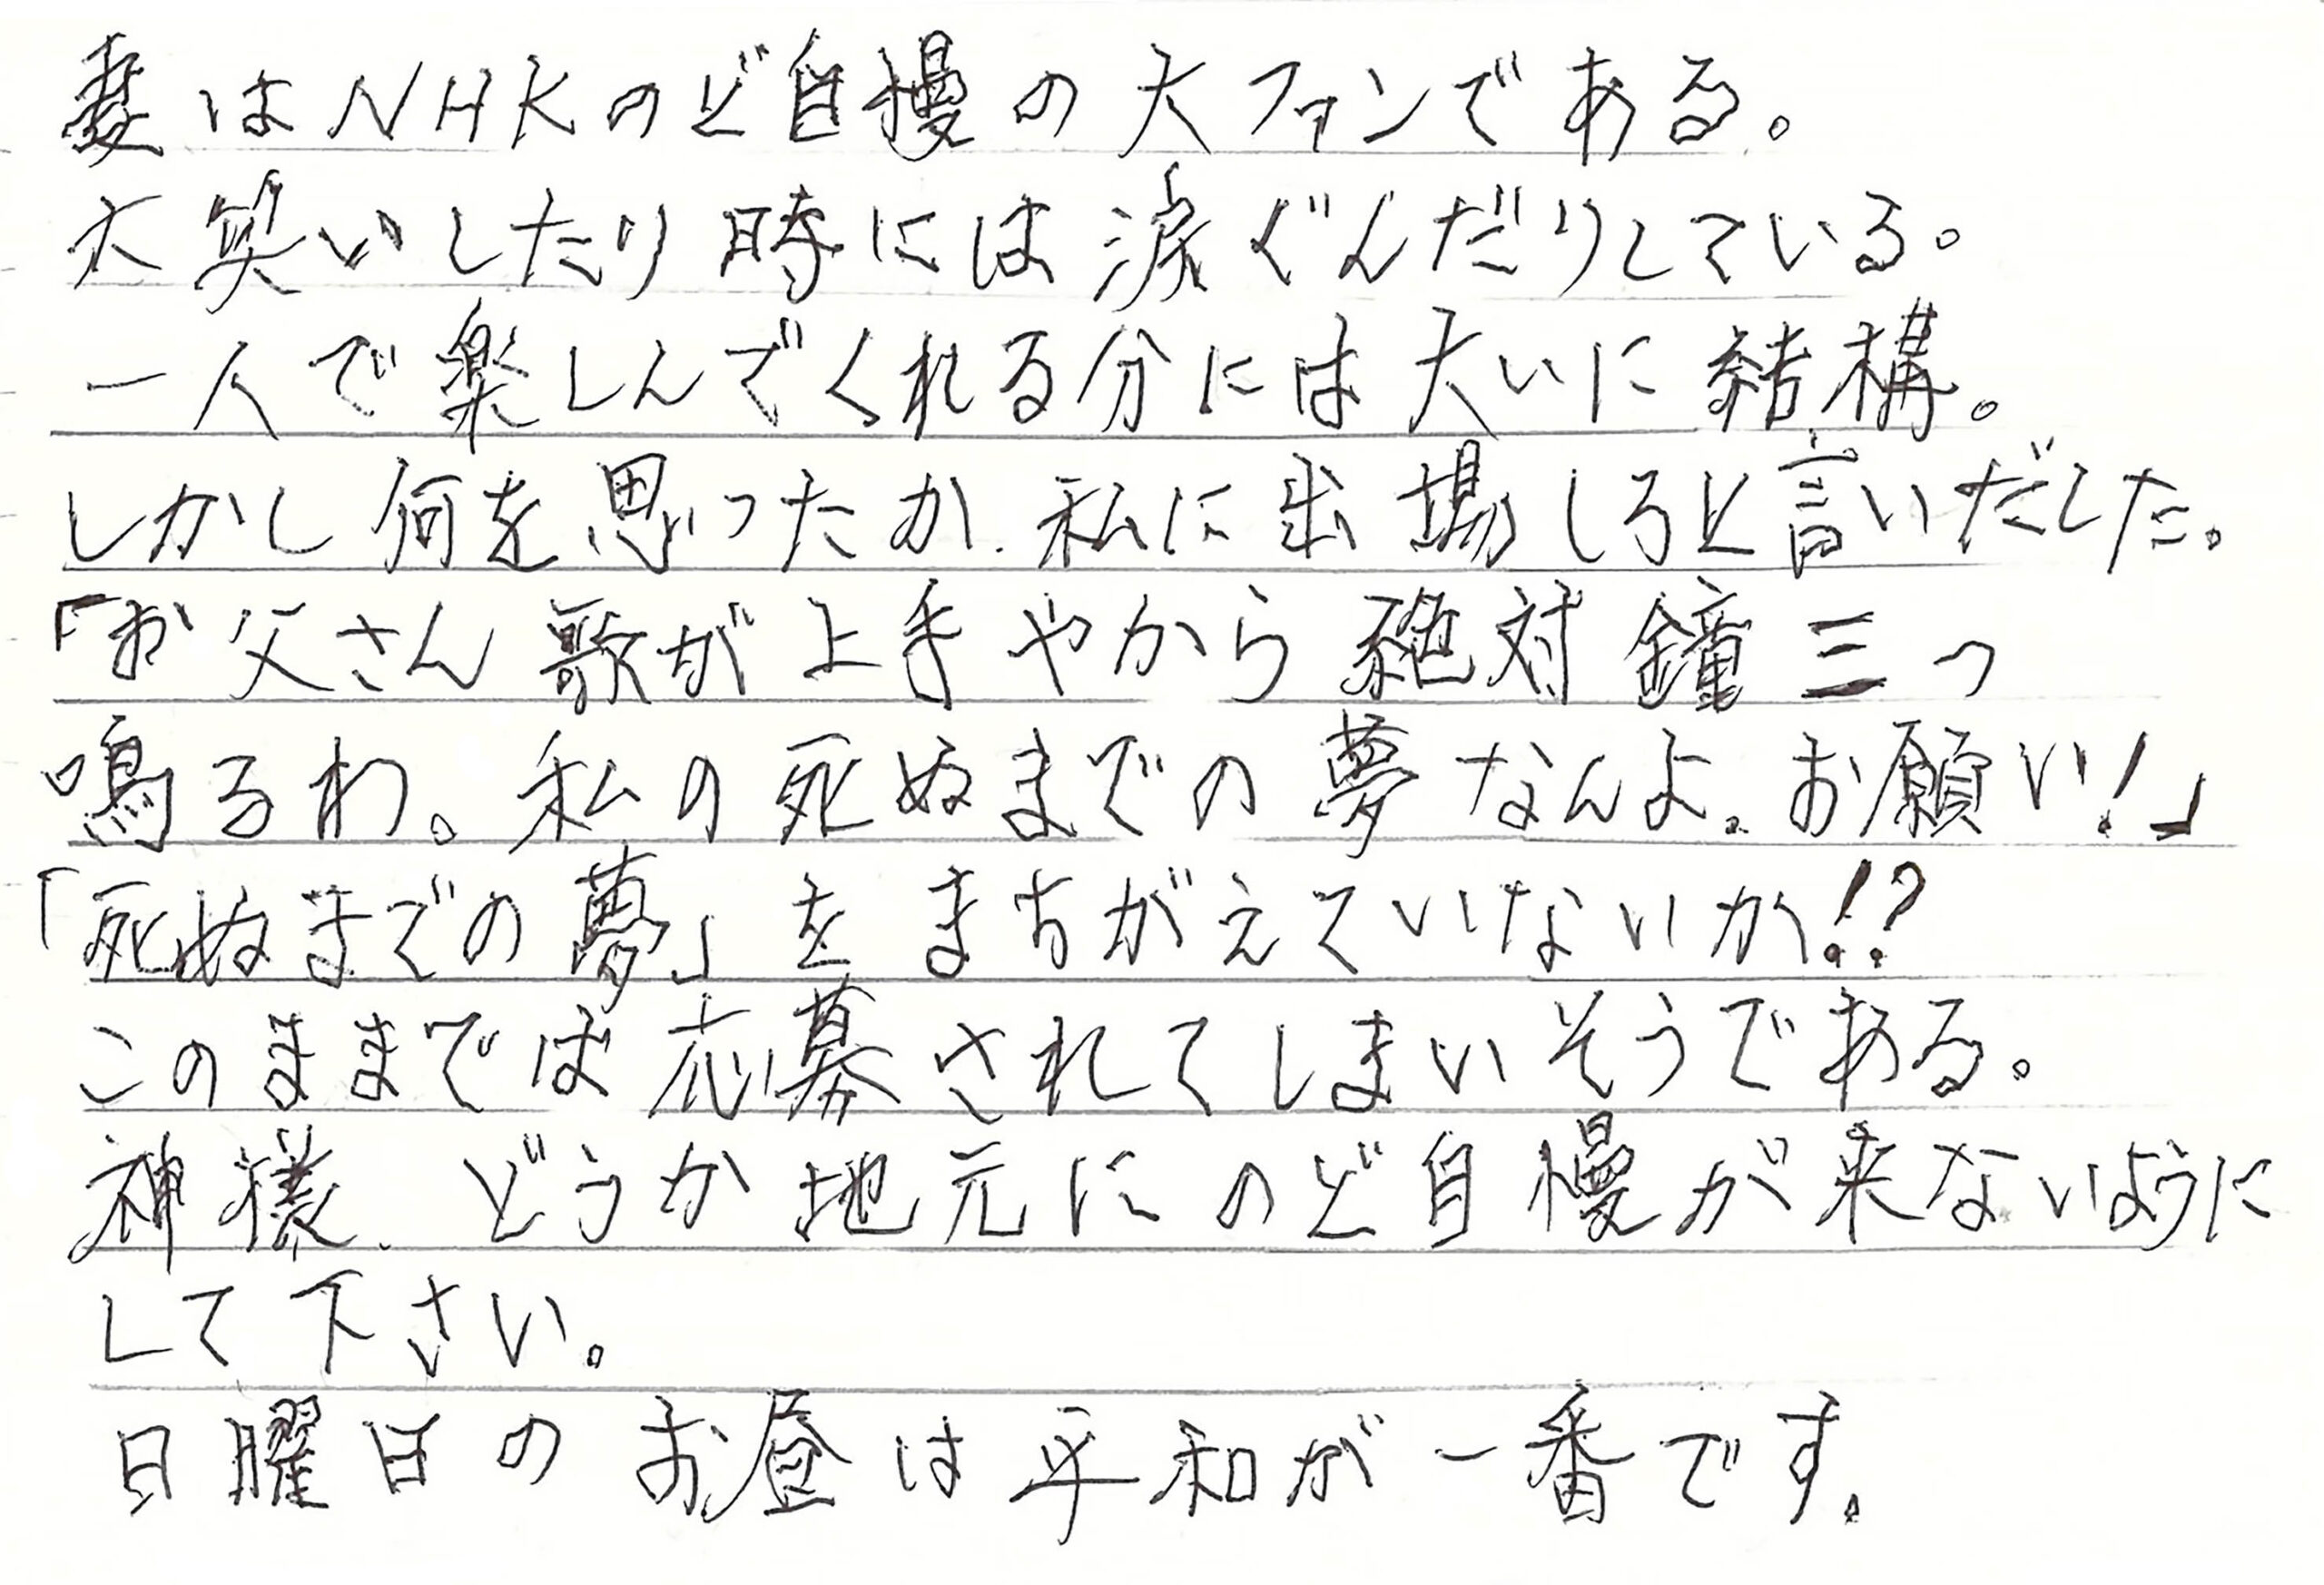 妻はNHKのど自慢の大ファンである。
大笑いしたり時には涙ぐんだりしている。
一人で楽しんでくれる分には大いに結構。
しかし何を思ったか、私に出場しろと言いだした。
「お父さん歌が上手やから絶対鐘三つ
鳴るわ。私の死ぬまでの夢なんよ。お願い!」
「死ぬまでの夢」をまちがえていないか!?
このままでは応募されてしまいそうである。
神様、どうか地元にのど自慢が来ないように
して下さい。
日曜日のお昼は平和が一番です。